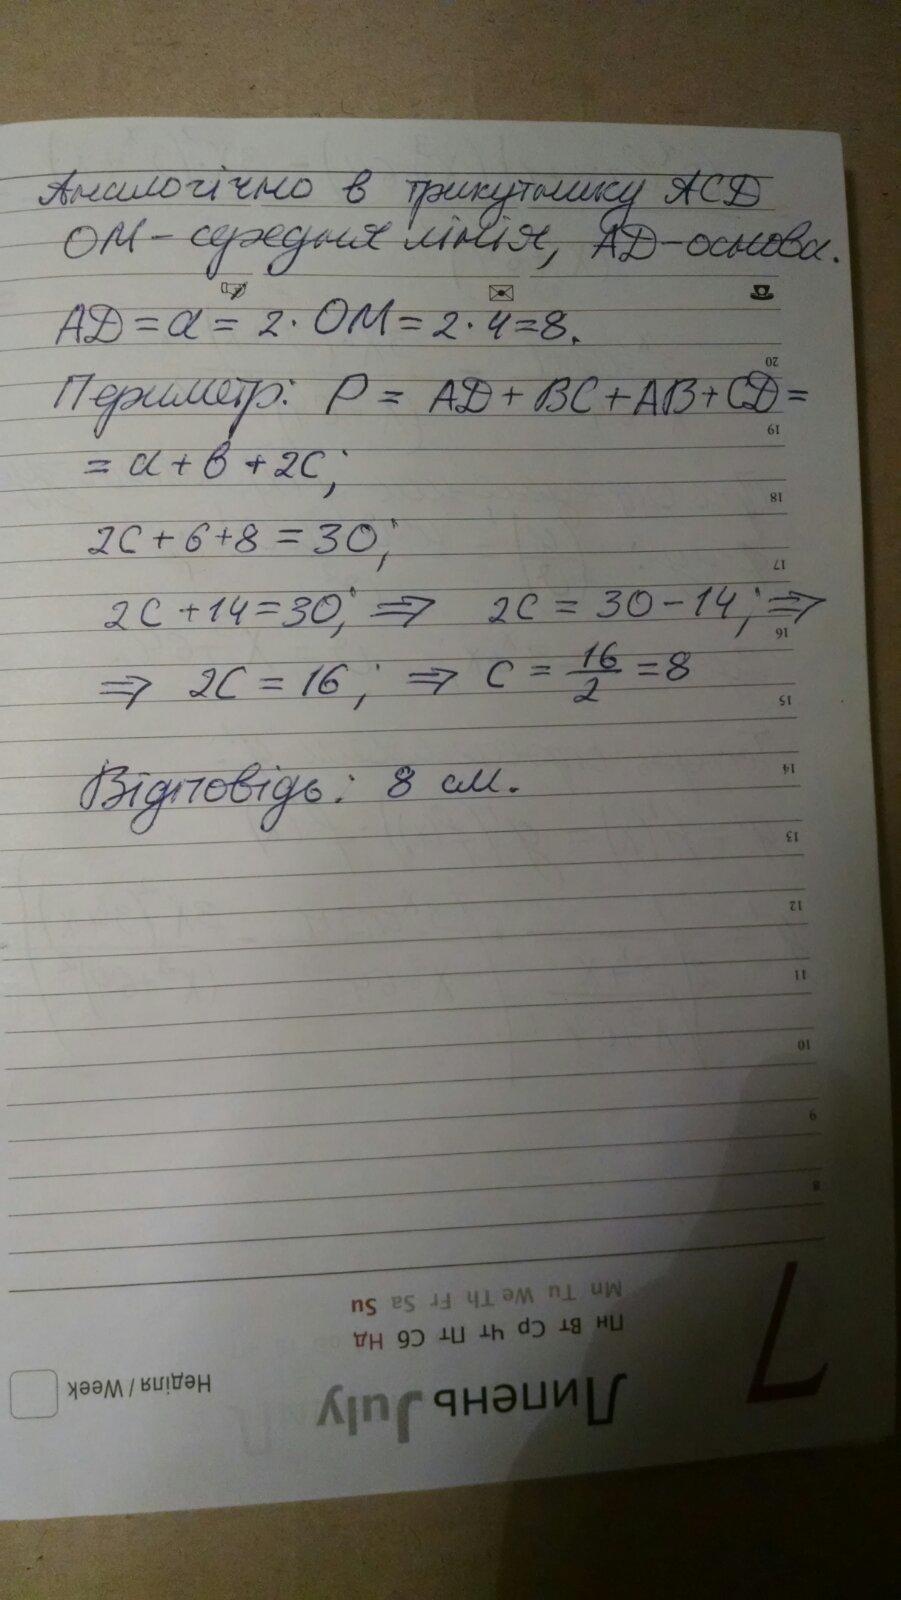 Аналогічно в трикутнику ACD
OM - середня лінія, AD - основа.
AD = a = 2 · OM = 2 · 4 = 8.
Периметр: P = AD + BC + AB + CD =
= a + b + 2c;
2c + 6 + 8 = 30;
2c + 14 = 30; ⇒ 2c = 30 - 14; ⇒
⇒ 2c = 16; ⇒ c = 16/2 = 8
Відповідь: 8 см.
20
19
18
17
16
15
14
13
12
11
10
9
8
Mn Tu We Th Fr Sa Su
Пн Вт Ср Чт Пт Сб Нд
7
Липень July
Неділя / Week